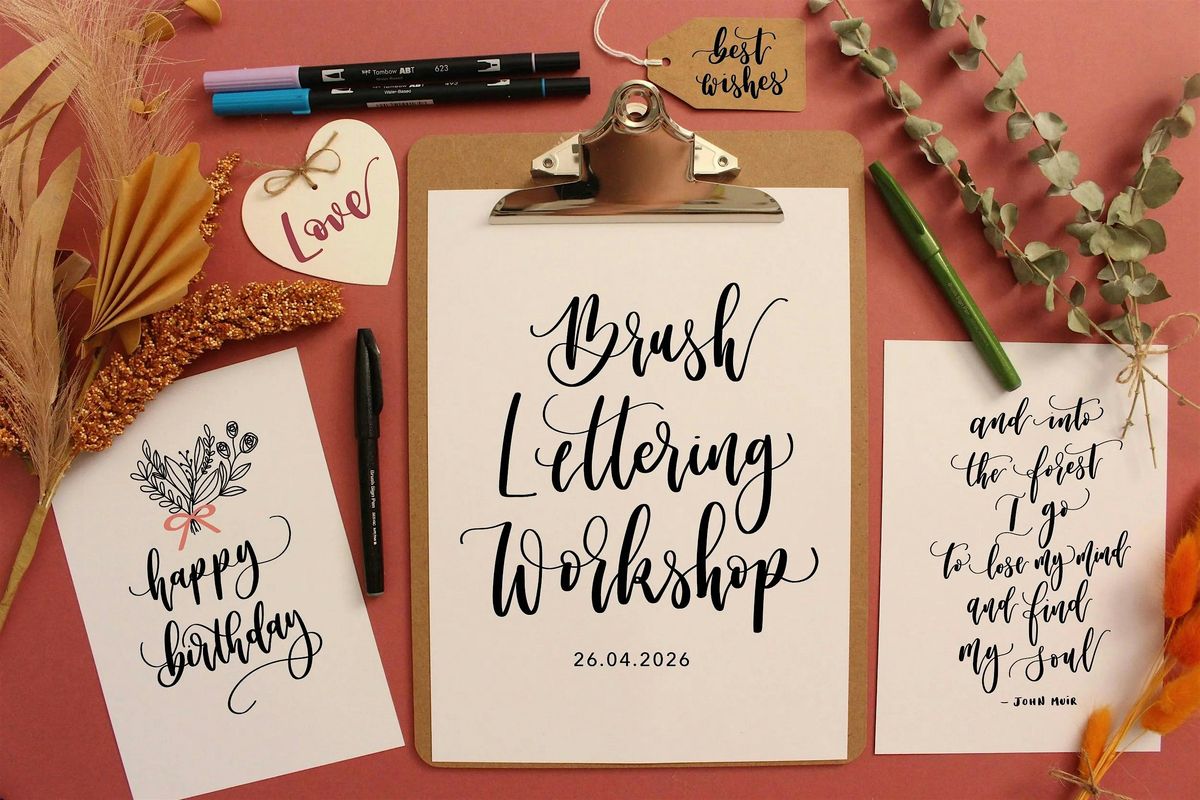 Tombow ABT
623
Water-Based
best
wishes
Love
Brush
Lettering
Workshop
26.04.2026
happy
birthday
Brush Sign Pen
and into
the forest
I go
to lose my mind
and find
my soul
- JOHN MUIR